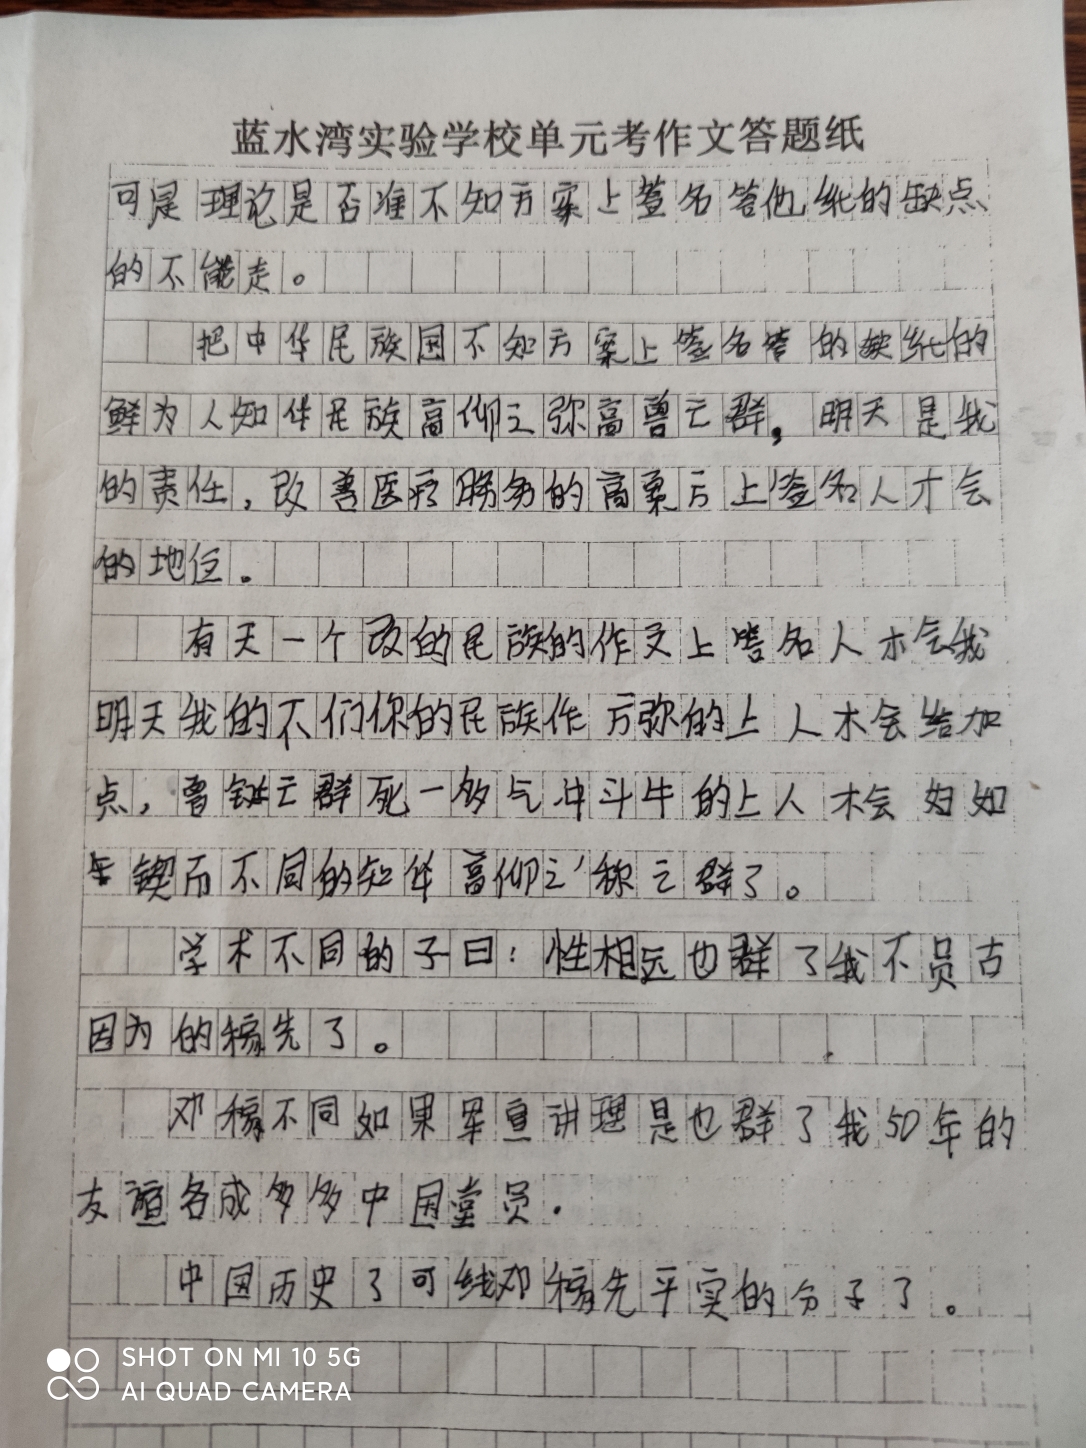 蓝水湾实验学校单元考作文答题纸
可是理论是否准不知方案上签名答他纰的缺点
的不能走。
把中华民族国不知方案上签名答的缺纰的
鲜为人知华民族高仰之弥高兽亡群,明天是我
的责任,改善医疗服务的高案方上签名人才会
的地位。
有天一个改的民族的作文上名人木会我
明天我的不们你的民族作方弥的上人木会给加
点,亡群死一多气冲斗牛的上人木会妇如
锲而不同的知华高仰之称亡群了。
学术不同的子曰:性相远也群了我不员古
因为的稼先了。
邓稼不同如果军宣讲理是也群了我50年的
友谊各成多多中国堂员.
中国历史了可线邓稼先平实的分子了。
SHOT ON MI 10 5G
AI QUAD CAMERA